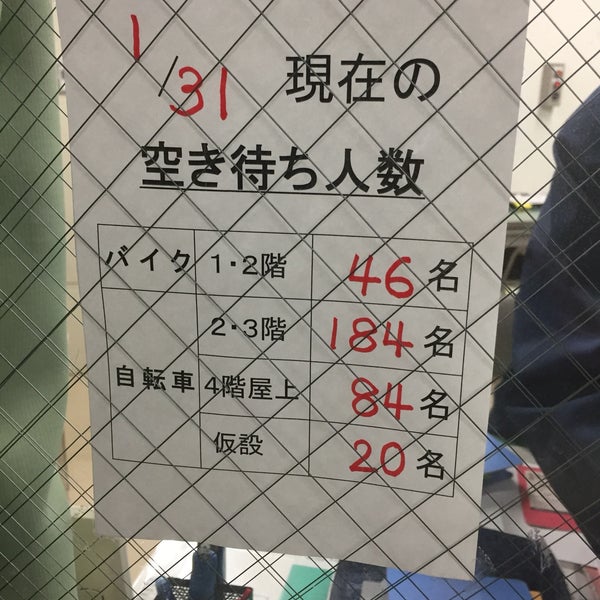 1/31 現在の
空き待ち人数
バイク 1・2階 46名
2・3階 184名
自転車 4階屋上 84名
仮設 20名